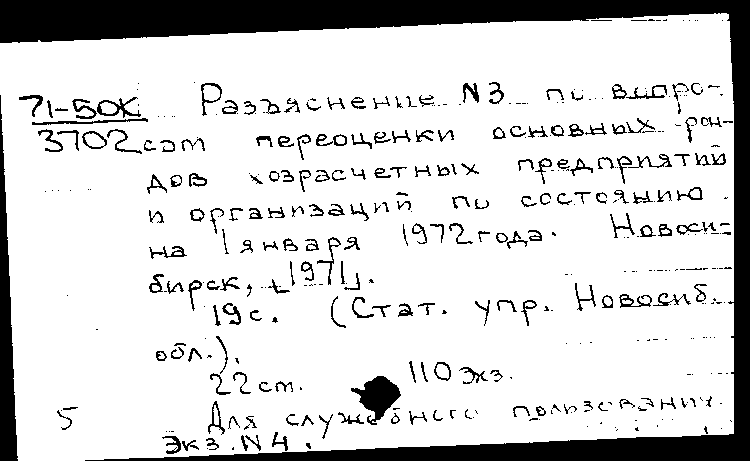 71-50К Разъяснение N3 по вопро-
3702 сам переоценки основных фон-
дов хозрасчетных предприятий
и организаций по состоянию
на 1 января 1972 года. Новоси-
бирск, [1971].
19 с. (Стат. упр. Новосиб.
обл.).
22 см. 110 экз.
5 Для служебного пользования.
Экз. N 4.